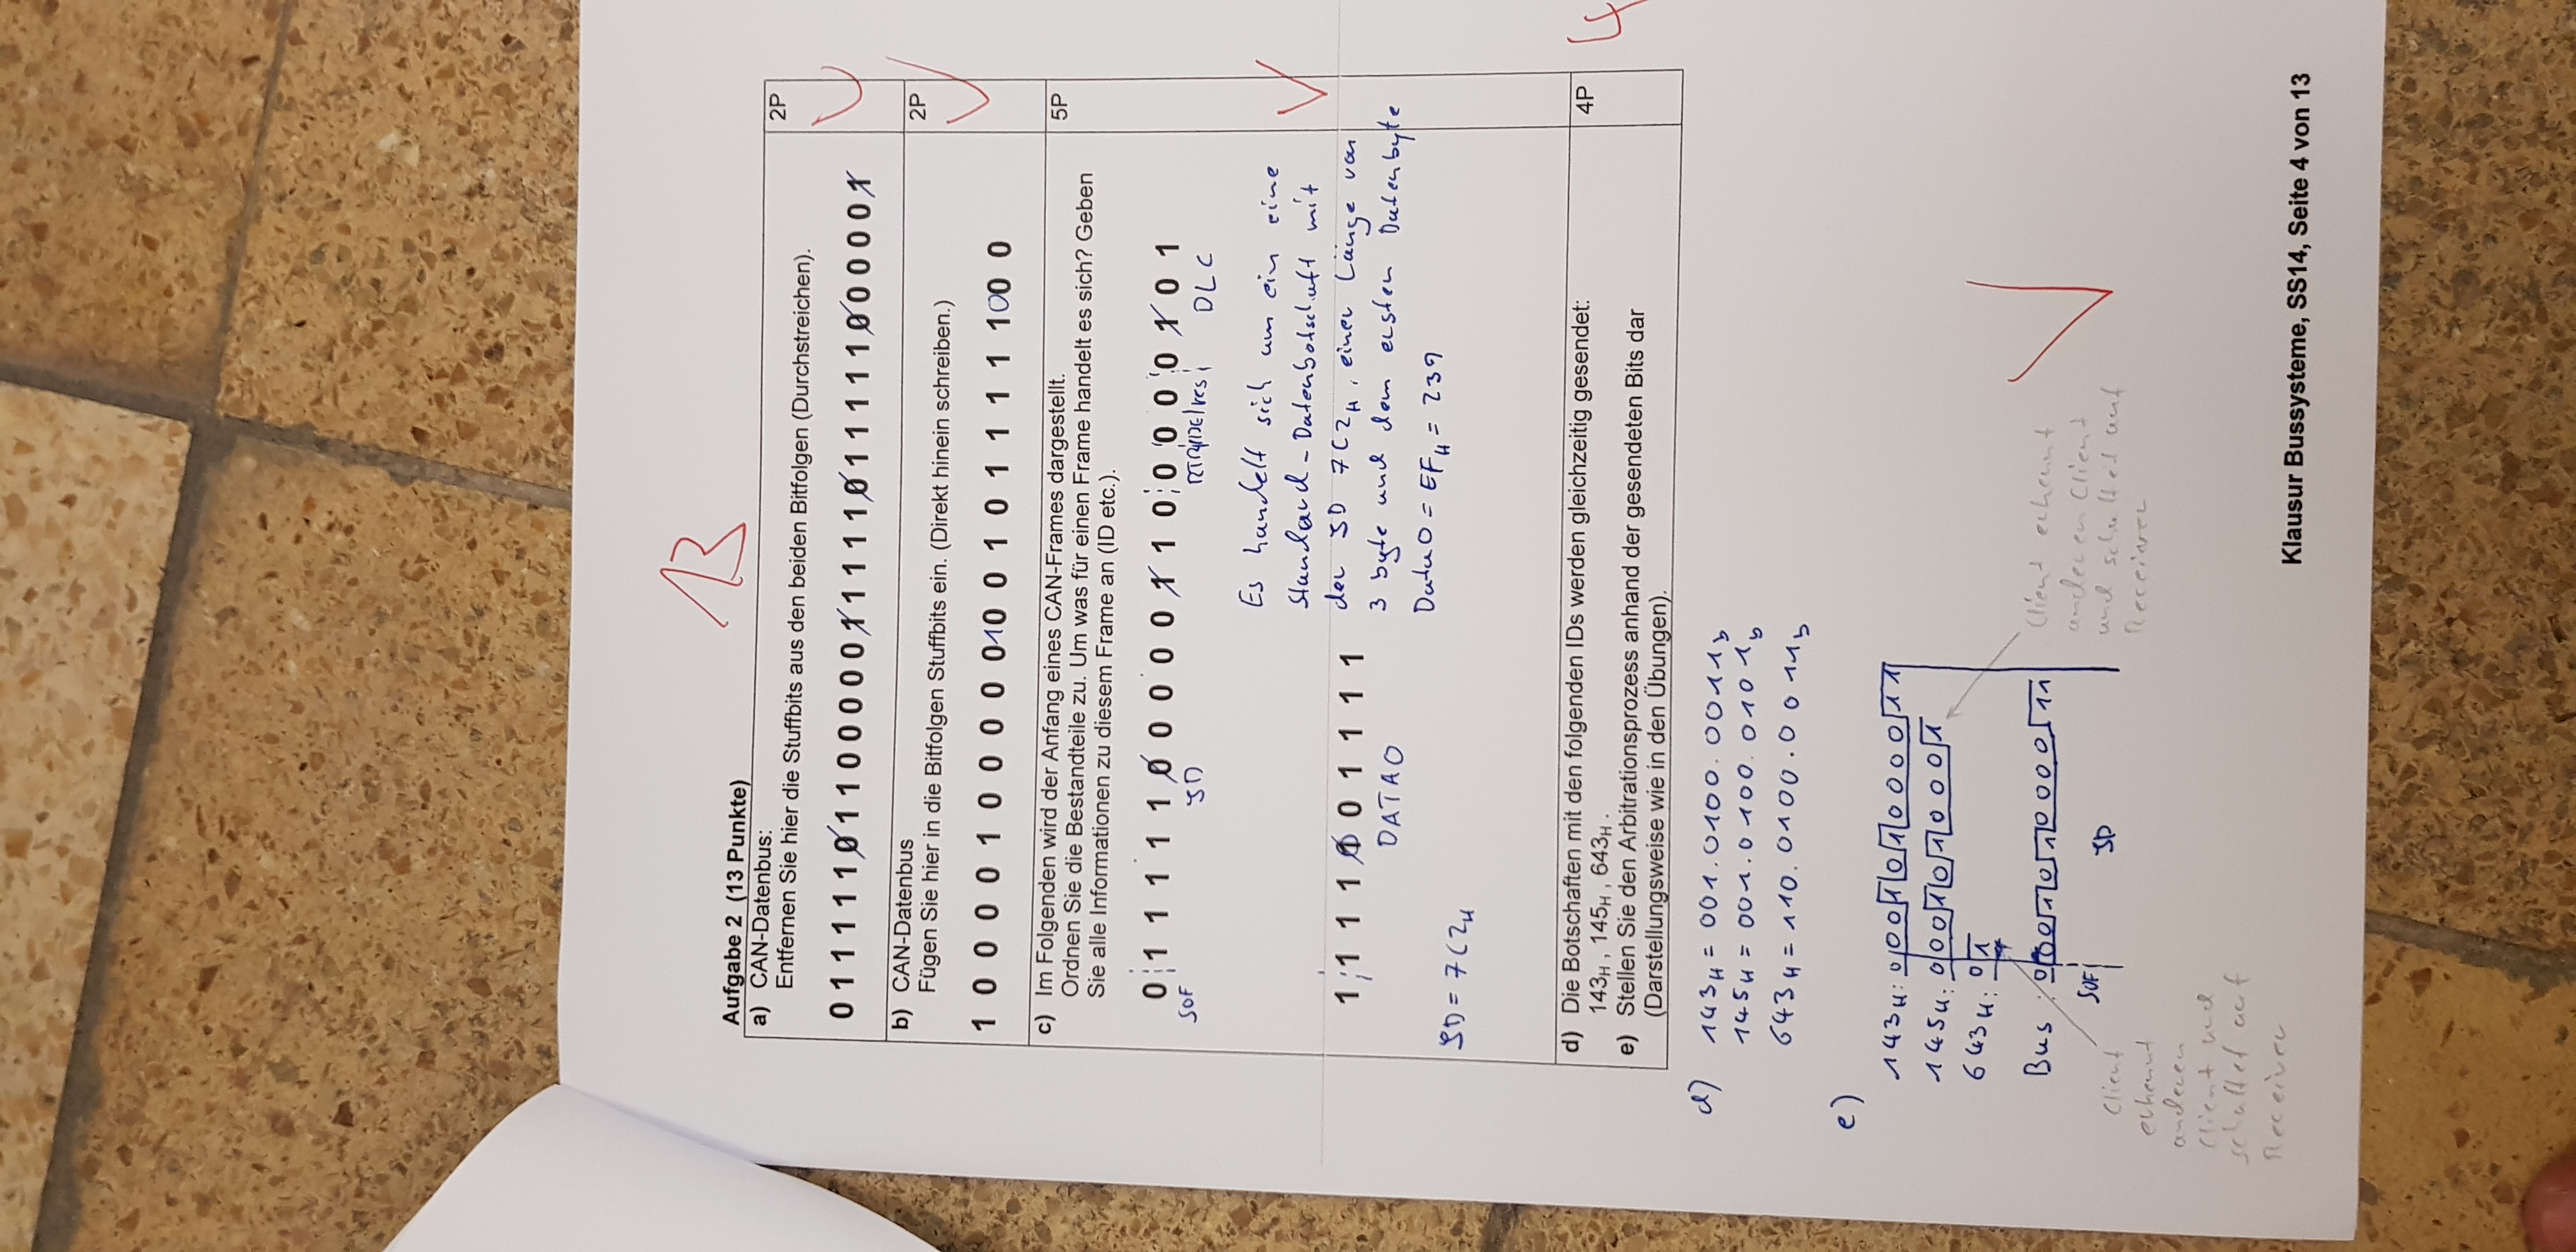 13
Aufgabe 2 (13 Punkte)
a) CAN-Datenbus: 2P
Entfernen Sie hier die Stuffbits aus den beiden Bitfolgen (Durchstreichen).
0 1 1 1 1 1 0 1 1 0 0 0 0 0 1 1 1 1 1 0 1 1 1 1 1 0 0 0 0 0 1
b) CAN-Datenbus 2P
Fügen Sie hier in die Bitfolgen Stuffbits ein. (Direkt hinein schreiben.)
1 0 0 0 0 1 0 0 0 0 0 1 0 0 1 0 1 1 1 1 1 0 0 0
c) Im Folgenden wird der Anfang eines CAN-Frames dargestellt. 5P
Ordnen Sie die Bestandteile zu. Um was für einen Frame handelt es sich? Geben
Sie alle Informationen zu diesem Frame an (ID etc.).
0 1 1 1 1 1 0 0 0 0 0 1 1 0 0 0 0 0 1 0 1
SOF ID RTR/IDE/res DLC
Es handelt sich um ein eine
Standard-Datenbotschaft mit
der ID 7C2H, einer Länge von
3 byte und dem ersten Datenbyte
Data0 = EFH = 239
1 1 1 1 0 0 1 1 1 1
DATA0
ID = 7C2H
d) Die Botschaften mit den folgenden IDs werden gleichzeitig gesendet: 4P
143H , 145H , 643H .
4
e) Stellen Sie den Arbitrationsprozess anhand der gesendeten Bits dar
(Darstellungsweise wie in den Übungen).
d) 143H = 001.0100.0011b
145H = 001.0100.0101b
643H = 110.0100.0011b
e)
143H: 0 0 0 1 0 1 0 0 0 0 1 1
145H: 0 0 0 1 0 1 0 0 0 1
643H: 0 1
Bus : 0 0 0 1 0 1 0 0 0 0 1 1
SOF ID
Client erkennt
anderen Client
und schaltet auf
Receiver
Client
erkennt
anderen
Client und
schaltet auf
Receiver
Klausur Bussysteme, SS14, Seite 4 von 13